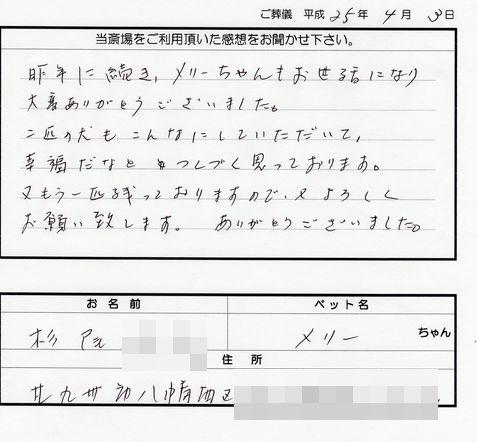 ご葬儀 平成 25年 4月 3日
当斎場をご利用頂いた感想をお聞かせ下さい。
昨年に続き、メリーちゃんもお世話になり
大変ありがとうございました。
二匹の犬もこんなにしていただいて、
幸福だなと つくづく思っております。
又もう一匹残っておりますので、又よろしく
お願い致します。 ありがとうございました。
お名前 ペット名
杉 メリー ちゃん
住所
北九州市八幡西区